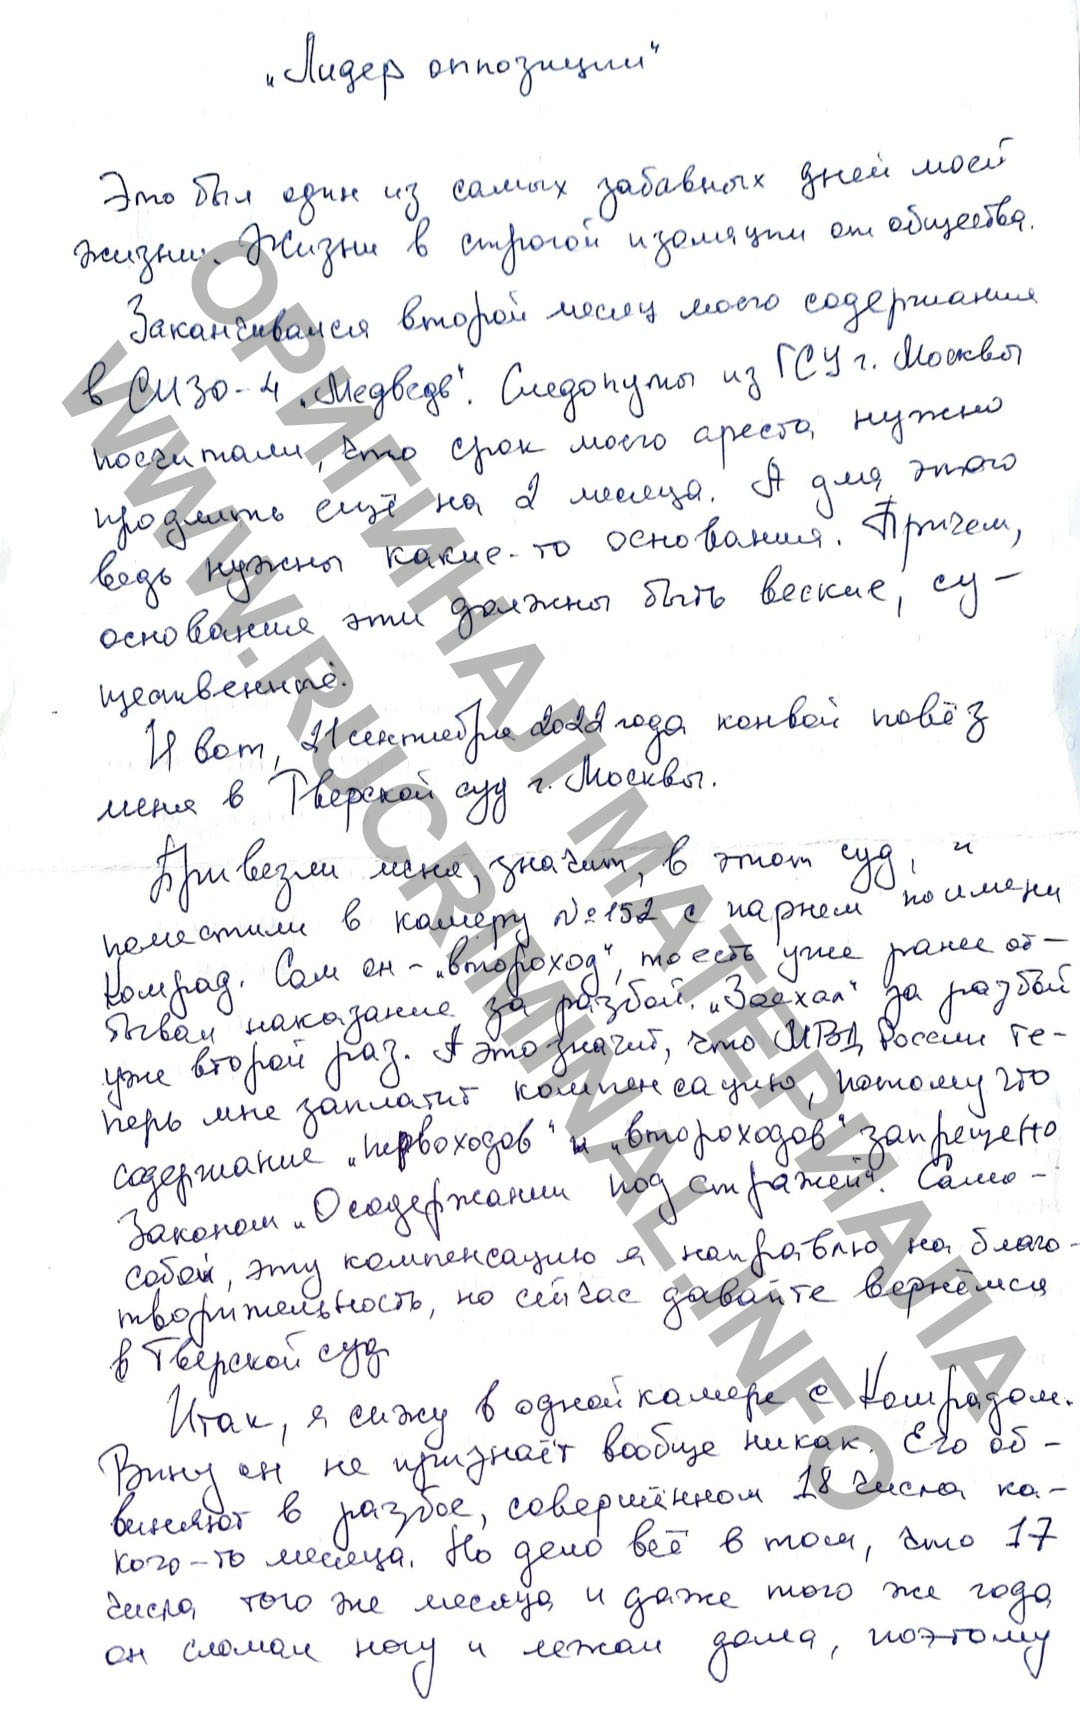 „Лидер оппозиции“
Это был один из самых забавных дней моей
жизни. Жизни в строгой изоляции от общества.
Заканчивался второй месяц моего содержания
в СИЗО-4 „Медведь“. Следопуты из ГСУ г. Москвы
посчитали, что срок моего ареста нужно
продлить ещё на 2 месяца. А для этого
ведь нужны какие-то основания. Причем,
основания эти должны быть веские, су-
щественные.
И вот, 21 сентября 2022 года конвой повёз
меня в Тверской суд г. Москвы.
Привезли меня, значит, в этот суд, и
поместили в камеру №152 с парнем по имени
Комрад. Сам он – „второход“, то есть уже ранее от-
бывал наказание за разбой. „Заехал“ за разбой
уже второй раз. А это значит, что МВД России те-
перь мне заплатит компенсацию, потому что
содержание „первоходов“ и „второходов“ запрещено
Законом „О содержании под стражей“. Само-
собой, эту компенсацию я направлю на благо-
творительность, но сейчас давайте вернёмся
в Тверской суд
Итак, я сижу в одной камере с Комрадом.
Вину он не признаёт вообще никак. Его об-
виняют в разбое, совершённом 18 числа ка-
кого-то месяца. Но дело всё в том, что 17
числа того же месяца и даже того же года
он сломал ногу и лежал дома, поэтому
ОРИГИНАЛ МАТЕРИАЛА
WWW.RUCRIMINAL.INFO